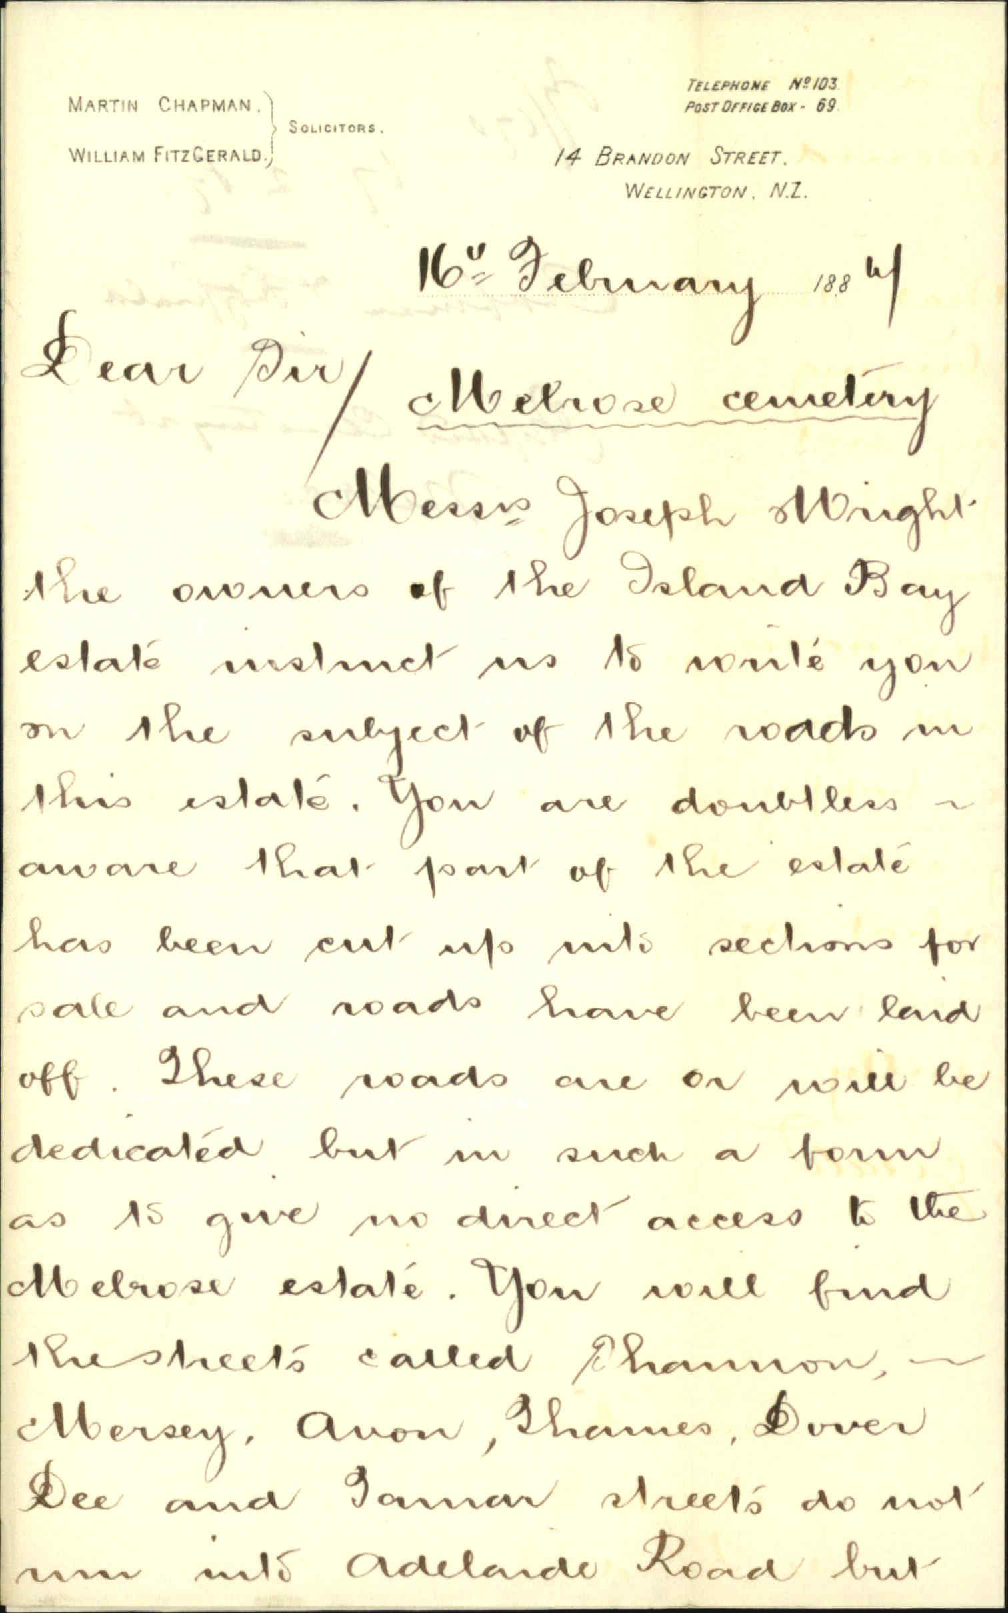 MARTIN CHAPMAN.
WILLIAM FITZGERALD.
SOLICITORS.
TELEPHONE No 103.
POST OFFICE BOX - 69.
14 BRANDON STREET.
WELLINGTON. N.Z.
16th February 188
Dear Sir/
Melrose cemetery
Messrs Joseph & Wright
the owners of the Island Bay
estate instruct us to write you
on the subject of the roads in
this estate. You are doubtless ~
aware that part of the estate
has been cut up into sections for
sale and roads have been laid
off. These roads are or will be
dedicated but in such a form
as to give no direct access to the
Melrose estate. You will find
the streets called Shannon, ~
Mersey, Avon, Thames, Dover
Dee and Tamar streets do not
run into Adelaide Road but